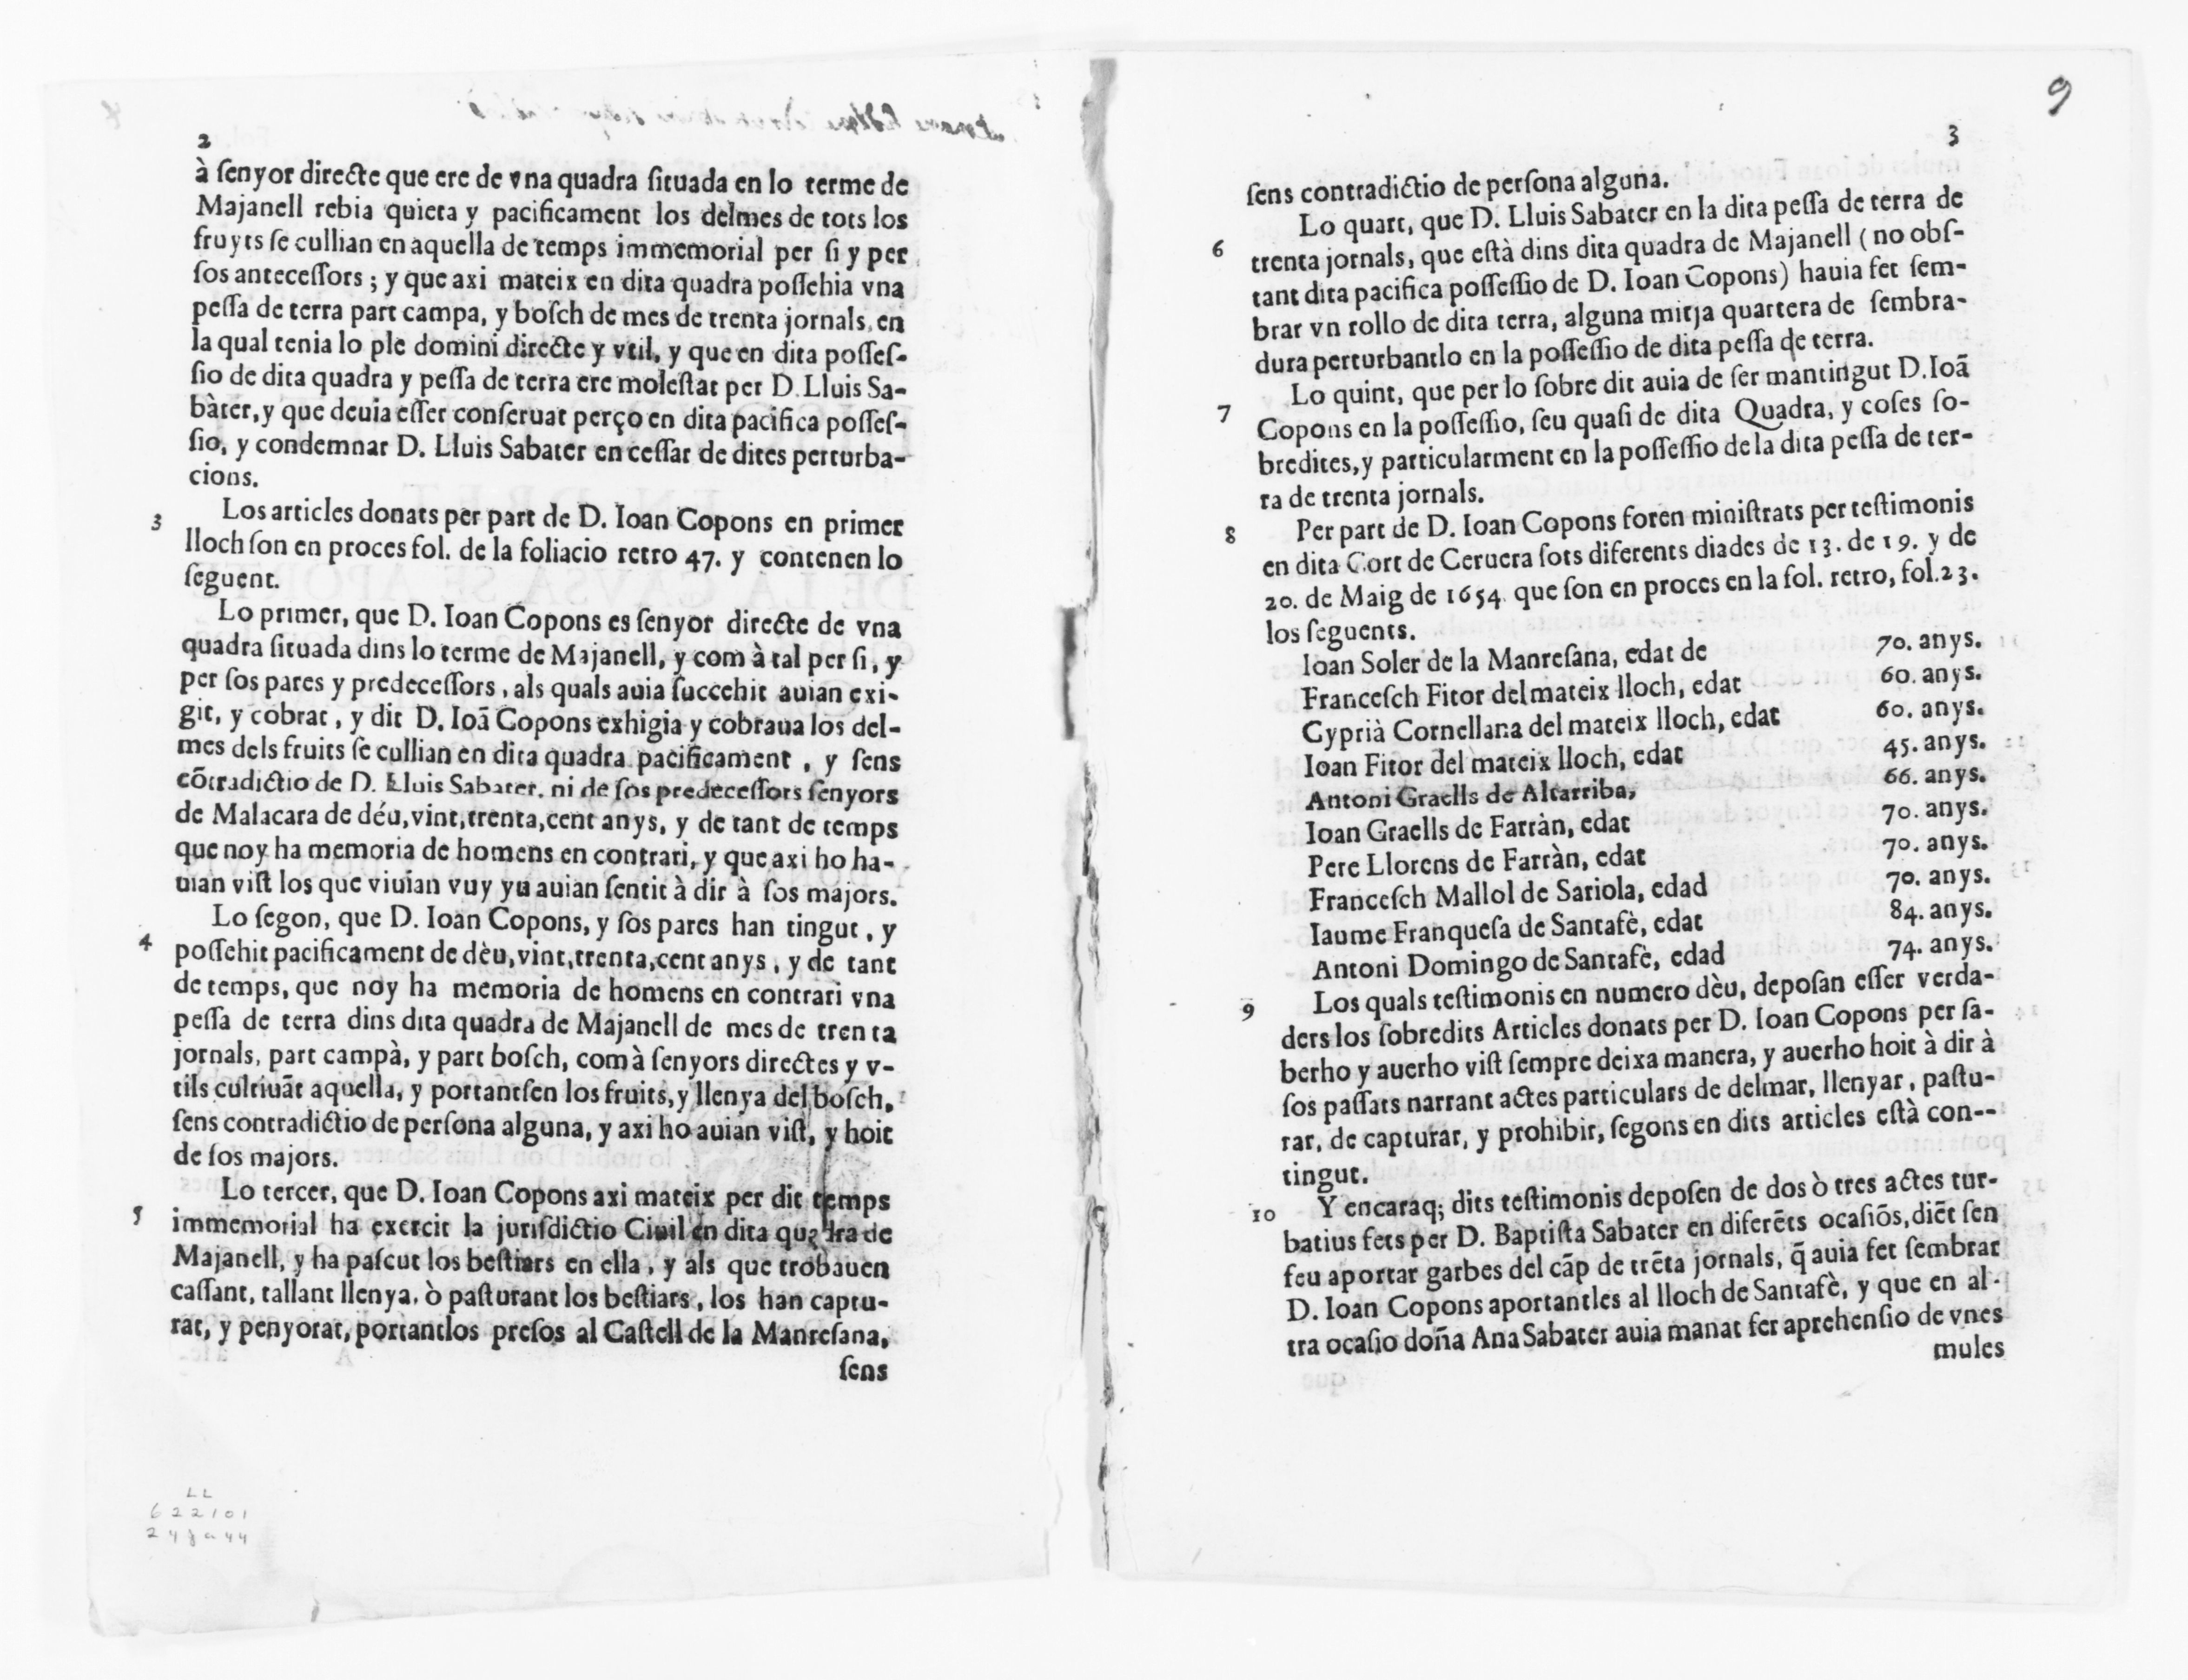 2
à ſenyor directe que ere de vna quadra ſituada en lo terme de
Majanell rebia quieta y pacificament los delmes de tots los
fruyts ſe cullian en aquella de temps immemorial per ſi y per
ſos anteceſſors ; y que axi mateix en dita quadra poſſehia vna
peſſa de terra part campa, y boſch de mes de trenta jornals, en
la qual tenia lo ple domini directe y vtil, y que en dita poſſeſ-
ſio de dita quadra y peſſa de terra ere moleſtat per D. Lluis Sa-
bàter, y que deuia eſſer conſeruat perço en dita pacifica poſſeſ-
ſio, y condemnar D. Lluis Sabater en ceſſar de dites perturba-
cions.
3 Los articles donats per part de D. Ioan Copons en primer
lloch ſon en proces fol. de la foliacio retro 47. y contenen lo
ſeguent.
Lo primer, que D. Ioan Copons es ſenyor directe de vna
quadra ſituada dins lo terme de Majanell, y com à tal per ſi, y
per ſos pares y predeceſſors, als quals auia ſuccehit auian exi-
git, y cobrat, y dit D. Ioã Copons exhigia y cobraua los del-
mes dels fruits ſe cullian en dita quadra pacificament, y ſens
cõtradictio de D. Lluis Sabater, ni de ſos predeceſſors ſenyors
de Malacara de déu, vint, trenta, cent anys, y de tant de temps
que noy ha memoria de homens en contrari, y que axi ho ha-
uian viſt los que viuian vuy yu auian ſentit à dir à ſos majors.
4 Lo ſegon, que D. Ioan Copons, y ſos pares han tingut, y
poſſehit pacificament de dèu, vint, trenta, cent anys, y de tant
de temps, que noy ha memoria de homens en contrari vna
peſſa de terra dins dita quadra de Majanell de mes de trenta
jornals, part campà, y part boſch, com à ſenyors directes y v-
tils cultiuãt aquella, y portantſen los fruits, y llenya del boſch,
ſens contradictio de perſona alguna, y axi ho auian viſt, y hoit
de ſos majors.
5 Lo tercer, que D. Ioan Copons axi mateix per dit temps
immemorial ha exercit la juriſdictio Ciuil en dita quadra de
Majanell, y ha paſcut los beſtiars en ella, y als que trobauen
caſſant, tallant llenya, ò paſturant los beſtiars, los han captu-
rat, y penyorat, portantlos preſos al Caſtell de la Manreſana,
ſens
LL
622101
9
3
ſens contradictio de perſona alguna.
6 Lo quart, que D. Lluis Sabater en la dita peſſa de terra de
trenta jornals, que eſtà dins dita quadra de Majanell ( no obſ-
tant dita pacifica poſſeſſio de D. Ioan Copons) hauia fet ſem-
brar vn rollo de dita terra, alguna mitja quartera de ſembra-
dura perturbantlo en la poſſeſſio de dita peſſa de terra.
7 Lo quint, que per lo ſobre dit auia de ſer mantingut D. Ioã
Copons en la poſſeſſio, ſeu quaſi de dita Quadra, y coſes ſo-
bredites, y particularment en la poſſeſſio de la dita peſſa de ter-
ra de trenta jornals.
8 Per part de D. Ioan Copons foren miniſtrats per teſtimonis
en dita Cort de Ceruera ſots diferents diades de 13. de 19. y de
20. de Maig de 1654. que ſon en proces en la fol. retro, fol. 23.
los ſeguents.
Ioan Soler de la Manreſana, edat de 70. anys.
Franceſch Fitor del mateix lloch, edat 60. anys.
Cyprià Cornellana del mateix lloch, edat 60. anys.
Ioan Fitor del mateix lloch, edat 45. anys.
Antoni Graells de Altarriba, 66. anys.
Ioan Graells de Farràn, edat 70. anys.
Pere Llorens de Farràn, edat 70. anys.
Franceſch Mallol de Sariola, edad 70. anys.
Iaume Franqueſa de Santafè, edat 84. anys.
Antoni Domingo de Santafè, edad 74. anys.
9 Los quals teſtimonis en numero dèu, depoſan eſſer verda-
ders los ſobredits Articles donats per D. Ioan Copons per ſa-
berho y auerho viſt ſempre deixa manera, y auerho hoit à dir à
ſos paſſats narrant actes particulars de delmar, llenyar, paſtu-
rar, de capturar, y prohibir, ſegons en dits articles eſtà con--
tingut.
10 Y encaraq; dits teſtimonis depoſen de dos ò tres actes tur-
batius fets per D. Baptiſta Sabater en diferẽts ocaſiõs, diẽt ſen
feu aportar garbes del cãp de trẽta jornals, q̃ auia fet ſembrar
D. Ioan Copons aportantles al lloch de Santafè, y que en al-
tra ocaſio doña Ana Sabater auia manat fer aprehenſio de vnes
mules